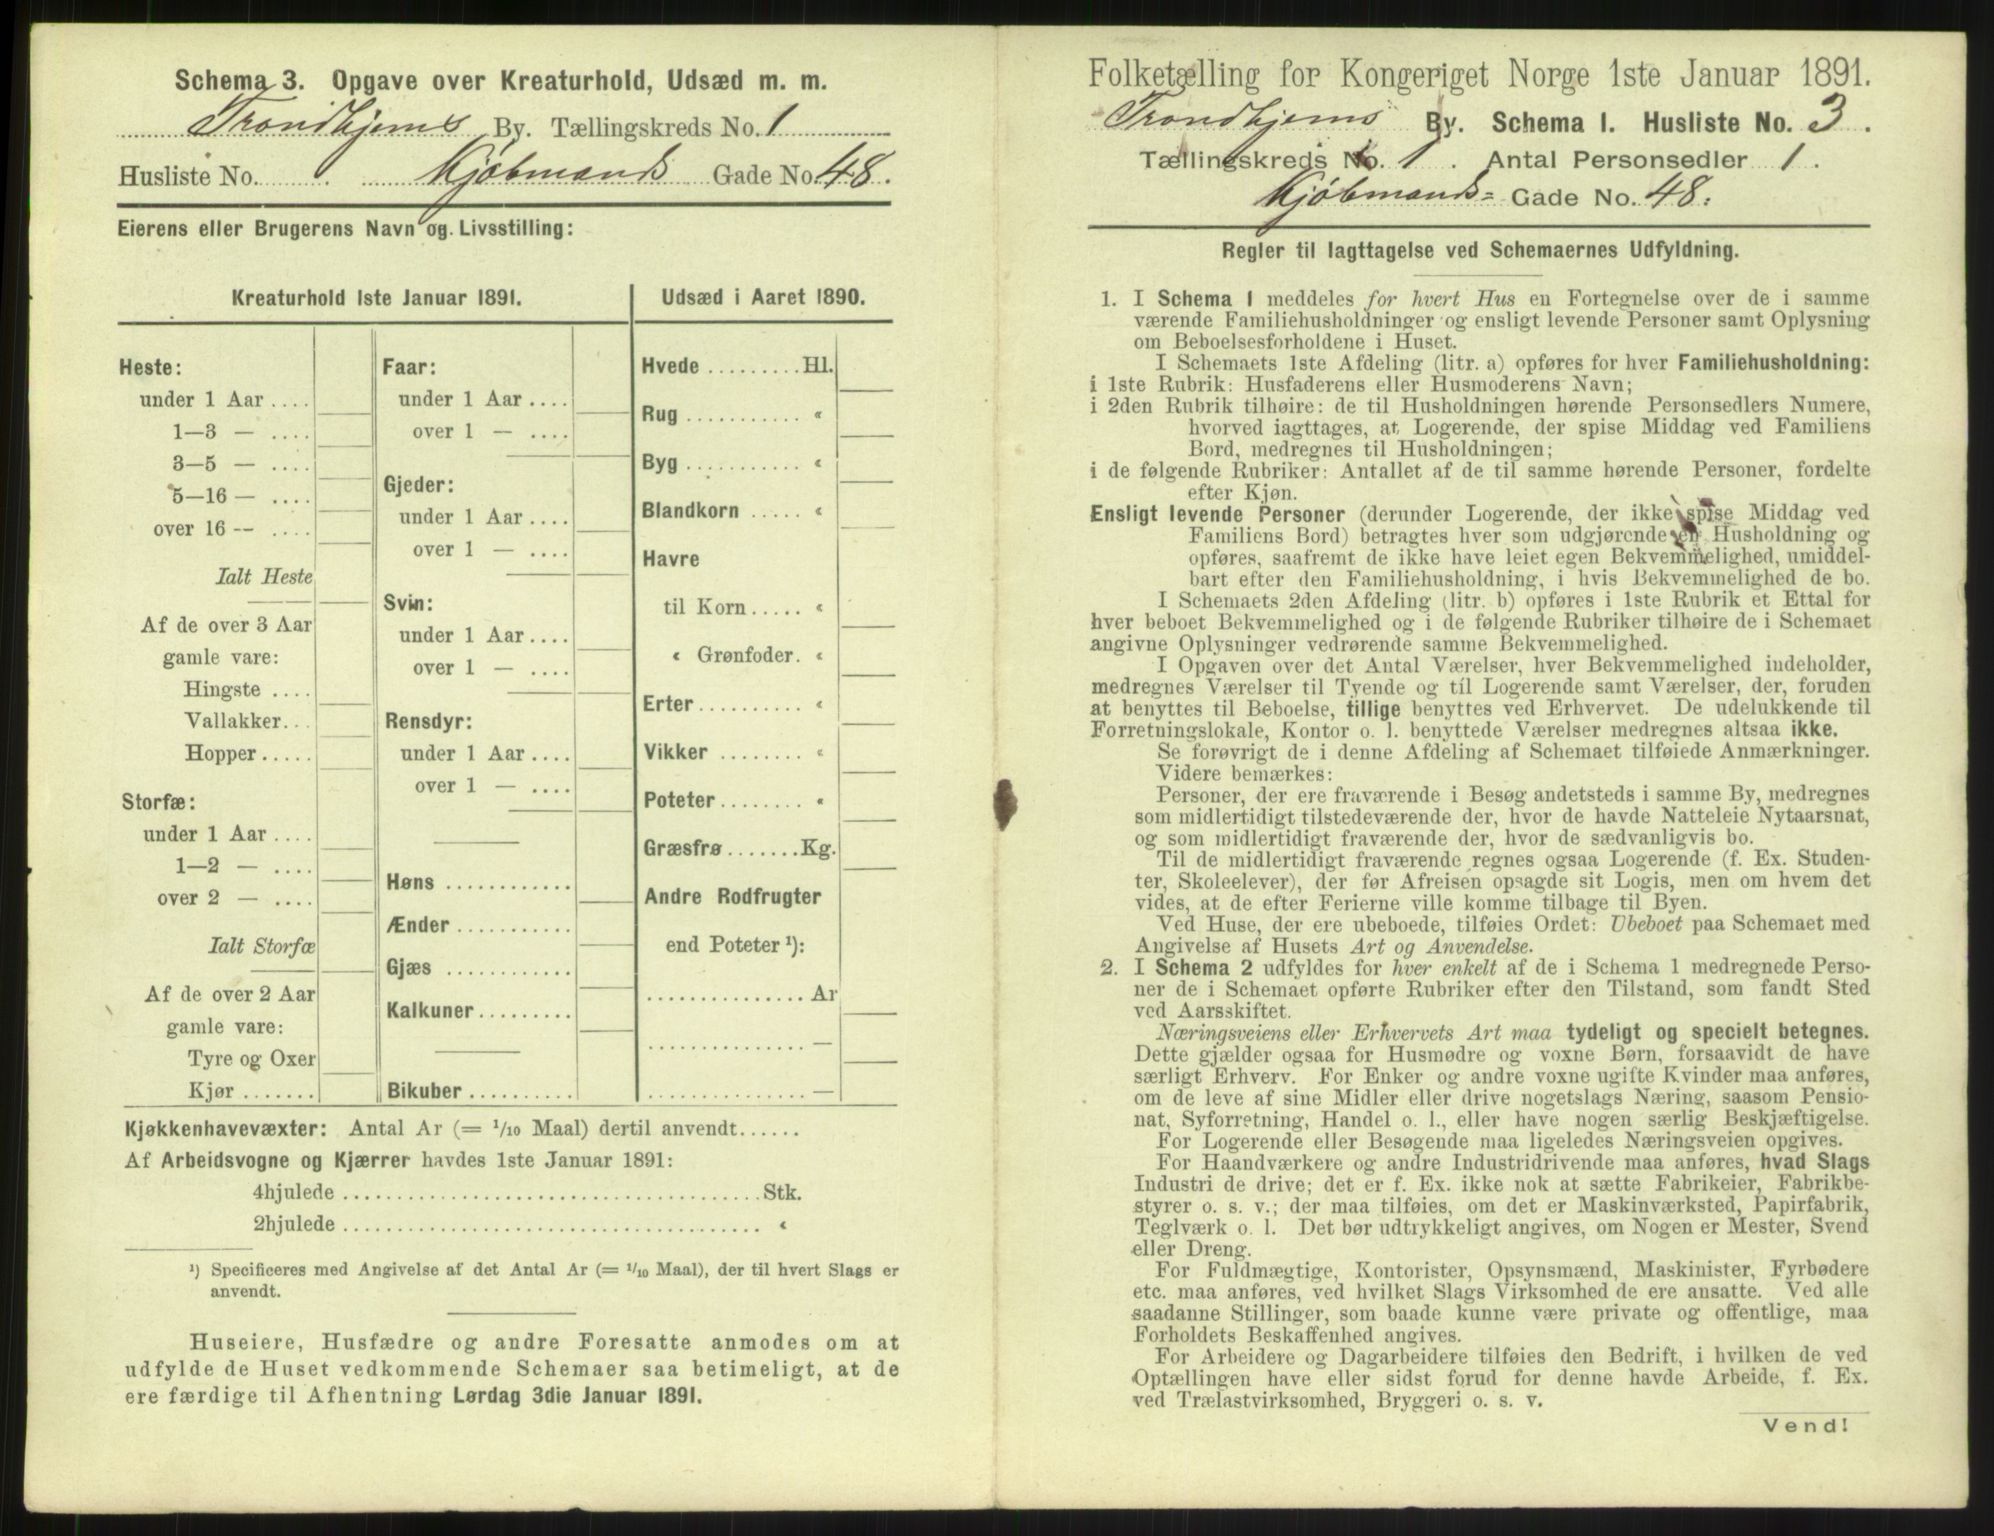 Schema 3. Opgave over Kreaturhold, Udsæd m. m.
Trondhjems By. Tællingskreds No. 1
Husliste No. Kjøbmands Gade No. 48.
Eierens eller Brugerens Navn og Livsstilling:
Kreaturhold 1ste Januar 1891.
Heste:
under 1 Aar ....
1—3 — ....
3—5 — ....
5—16 — ....
over 16 -- ....
Ialt Heste
Af de over 3 Aar
gamle vare:
Hingste ....
Vallakker...
Hopper.....
Storfæ:
under 1 Aar ....
1—2 — ....
over 2 — ....
Ialt Storfæ
Af de over 2 Aar
gamle vare:
Tyre og Oxer
Kjør .......
Faar:
under 1 Aar ....
over 1 — ....
Gjeder:
under 1 Aar ....
over 1 — ....
Svin:
under 1 Aar ....
over 1 — ....
Rensdyr:
under 1 Aar ....
over 1 — ....
Høns ............
Ænder ...........
Gjæs ............
Kalkuner.........
Bikuber ..........
Udsæd i Aaret 1890.
Hvede ......... Hl.
Rug ........... «
Byg ........... «
Blandkorn ..... «
Havre
til Korn ..... «
« Grønfoder. «
Erter.......... «
Vikker ........ «
Poteter........ «
Græsfrø .......Kg.
Andre Rodfrugter
end Poteter ¹):
............... Ar
............... —
............... —
Kjøkkenhavevæxter: Antal Ar (= 1/10 Maal) dertil anvendt......
Af Arbeidsvogne og Kjærrer havdes 1ste Januar 1891:
4hjulede ......................................Stk.
2hjulede ...................................... «
¹) Specificeres med Angivelse af det Antal Ar (= 1/10 Maal), der til hvert Slags er
anvendt.
Huseiere, Husfædre og andre Foresatte anmodes om at
udfylde de Huset vedkommende Schemaer saa betimeligt, at de
ere færdige til Afhentning Lørdag 3die Januar 1891.
Folketælling for Kongeriget Norge 1ste Januar 1891.
Trondhjems By. Schema 1. Husliste No. 3.
Tællingskreds No. 1. Antal Personsedler 1.
Kjøbmands= Gade No. 48.
Regler til Iagttagelse ved Schemaernes Udfyldning.
1. I Schema 1 meddeles for hvert Hus en Fortegnelse over de i samme
værende Familiehusholdninger og ensligt levende Personer samt Oplysning
om Beboelsesforholdene i Huset.
I Schemaets 1ste Afdeling (litr. a) opføres for hver Familiehusholdning:
i 1ste Rubrik: Husfaderens eller Husmoderens Navn;
i 2den Rubrik tilhøire: de til Husholdningen hørende Personsedlers Numere,
hvorved iagttages, at Logerende, der spise Middag ved Familiens
Bord, medregnes til Husholdningen;
i de følgende Rubriker: Antallet af de til samme hørende Personer, fordelte
efter Kjøn.
Ensligt levende Personer (derunder Logerende, der ikke spise Middag ved
Familiens Bord) betragtes hver som udgjørende en Husholdning og
opføres, saafremt de ikke have leiet egen Bekvemmelighed, umiddel-
bart efter den Familiehusholdning, i hvis Bekvemmelighed de bo.
I Schemaets 2den Afdeling (litr. b) opføres i 1ste Rubrik et Ettal for
hver beboet Bekvemmelighed og i de følgende Rubriker tilhøire de i Schemaet
angivne Oplysninger vedrørende samme Bekvemmelighed.
I Opgaven over det Antal Værelser, hver Bekvemmelighed indeholder,
medregnes Værelser til Tyende og til Logerende samt Værelser, der, foruden
at benyttes til Beboelse, tillige benyttes ved Erhvervet. De udelukkende til
Forretningslokale, Kontor o. l. benyttede Værelser medregnes altsaa ikke.
Se forøvrigt de i denne Afdeling af Schemaet tilføiede Anmærkninger.
Videre bemærkes:
Personer, der ere fraværende i Besøg andetsteds i samme By, medregnes
som midlertidigt tilstedeværende der, hvor de havde Natteleie Nytaarsnat,
og som midlertidigt fraværende der, hvor de sædvanligvis bo.
Til de midlertidigt fraværende regnes ogsaa Logerende (f. Ex. Studen-
ter, Skoleelever), der før Afreisen opsagde sit Logis, men om hvem det
vides, at de efter Ferierne ville komme tilbage til Byen.
Ved Huse, der ere ubeboede, tilføies Ordet: Ubeboet paa Schemaet med
Angivelse af Husets Art og Anvendelse.
2. I Schema 2 udfyldes for hver enkelt af de i Schema 1 medregnede Perso-
ner de i Schemaet opførte Rubriker efter den Tilstand, som fandt Sted
ved Aarsskiftet.
Næringsveiens eller Erhvervets Art maa tydeligt og specielt betegnes.
Dette gjælder ogsaa for Husmødre og voxne Børn, forsaavidt de have
særligt Erhverv. For Enker og andre voxne ugifte Kvinder maa anføres,
om de leve af sine Midler eller drive nogetslags Næring, saasom Pensio-
nat, Syforretning, Handel o. l., eller have nogen særlig Beskjæftigelse.
For Logerende eller Besøgende maa ligeledes Næringsveien opgives.
For Haandværkere og andre Industridrivende maa anføres, hvad Slags
Industri de drive; det er f. Ex. ikke nok at sætte Fabrikeier, Fabrikbe-
styrer o. s. v.; der maa tilføies, om det er Maskinværksted, Papirfabrik,
Teglværk o. l. Det bør udtrykkeligt angives, om Nogen er Mester, Svend
eller Dreng.
For Fuldmægtige, Kontorister, Opsynsmænd, Maskinister, Fyrbødere
etc. maa anføres, ved hvilket Slags Virksomhed de ere ansatte. Ved alle
saadanne Stillinger, som baade kunne være private og offentlige, maa
Forholdets Beskaffenhed angives.
For Arbeidere og Dagarbeidere tilføies den Bedrift, i hvilken de ved
Optællingen have eller sidst forud for denne havde Arbeide, f. Ex.
ved Trælastvirksomhed, Bryggeri o. s. v.
Vend!